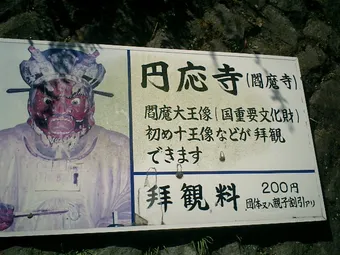 円応寺(閻魔寺)
閻魔大王像(国重要文化財)
初め十王像などが拝観
できます
拝観料
200円
団体又ハ親子割引アリ